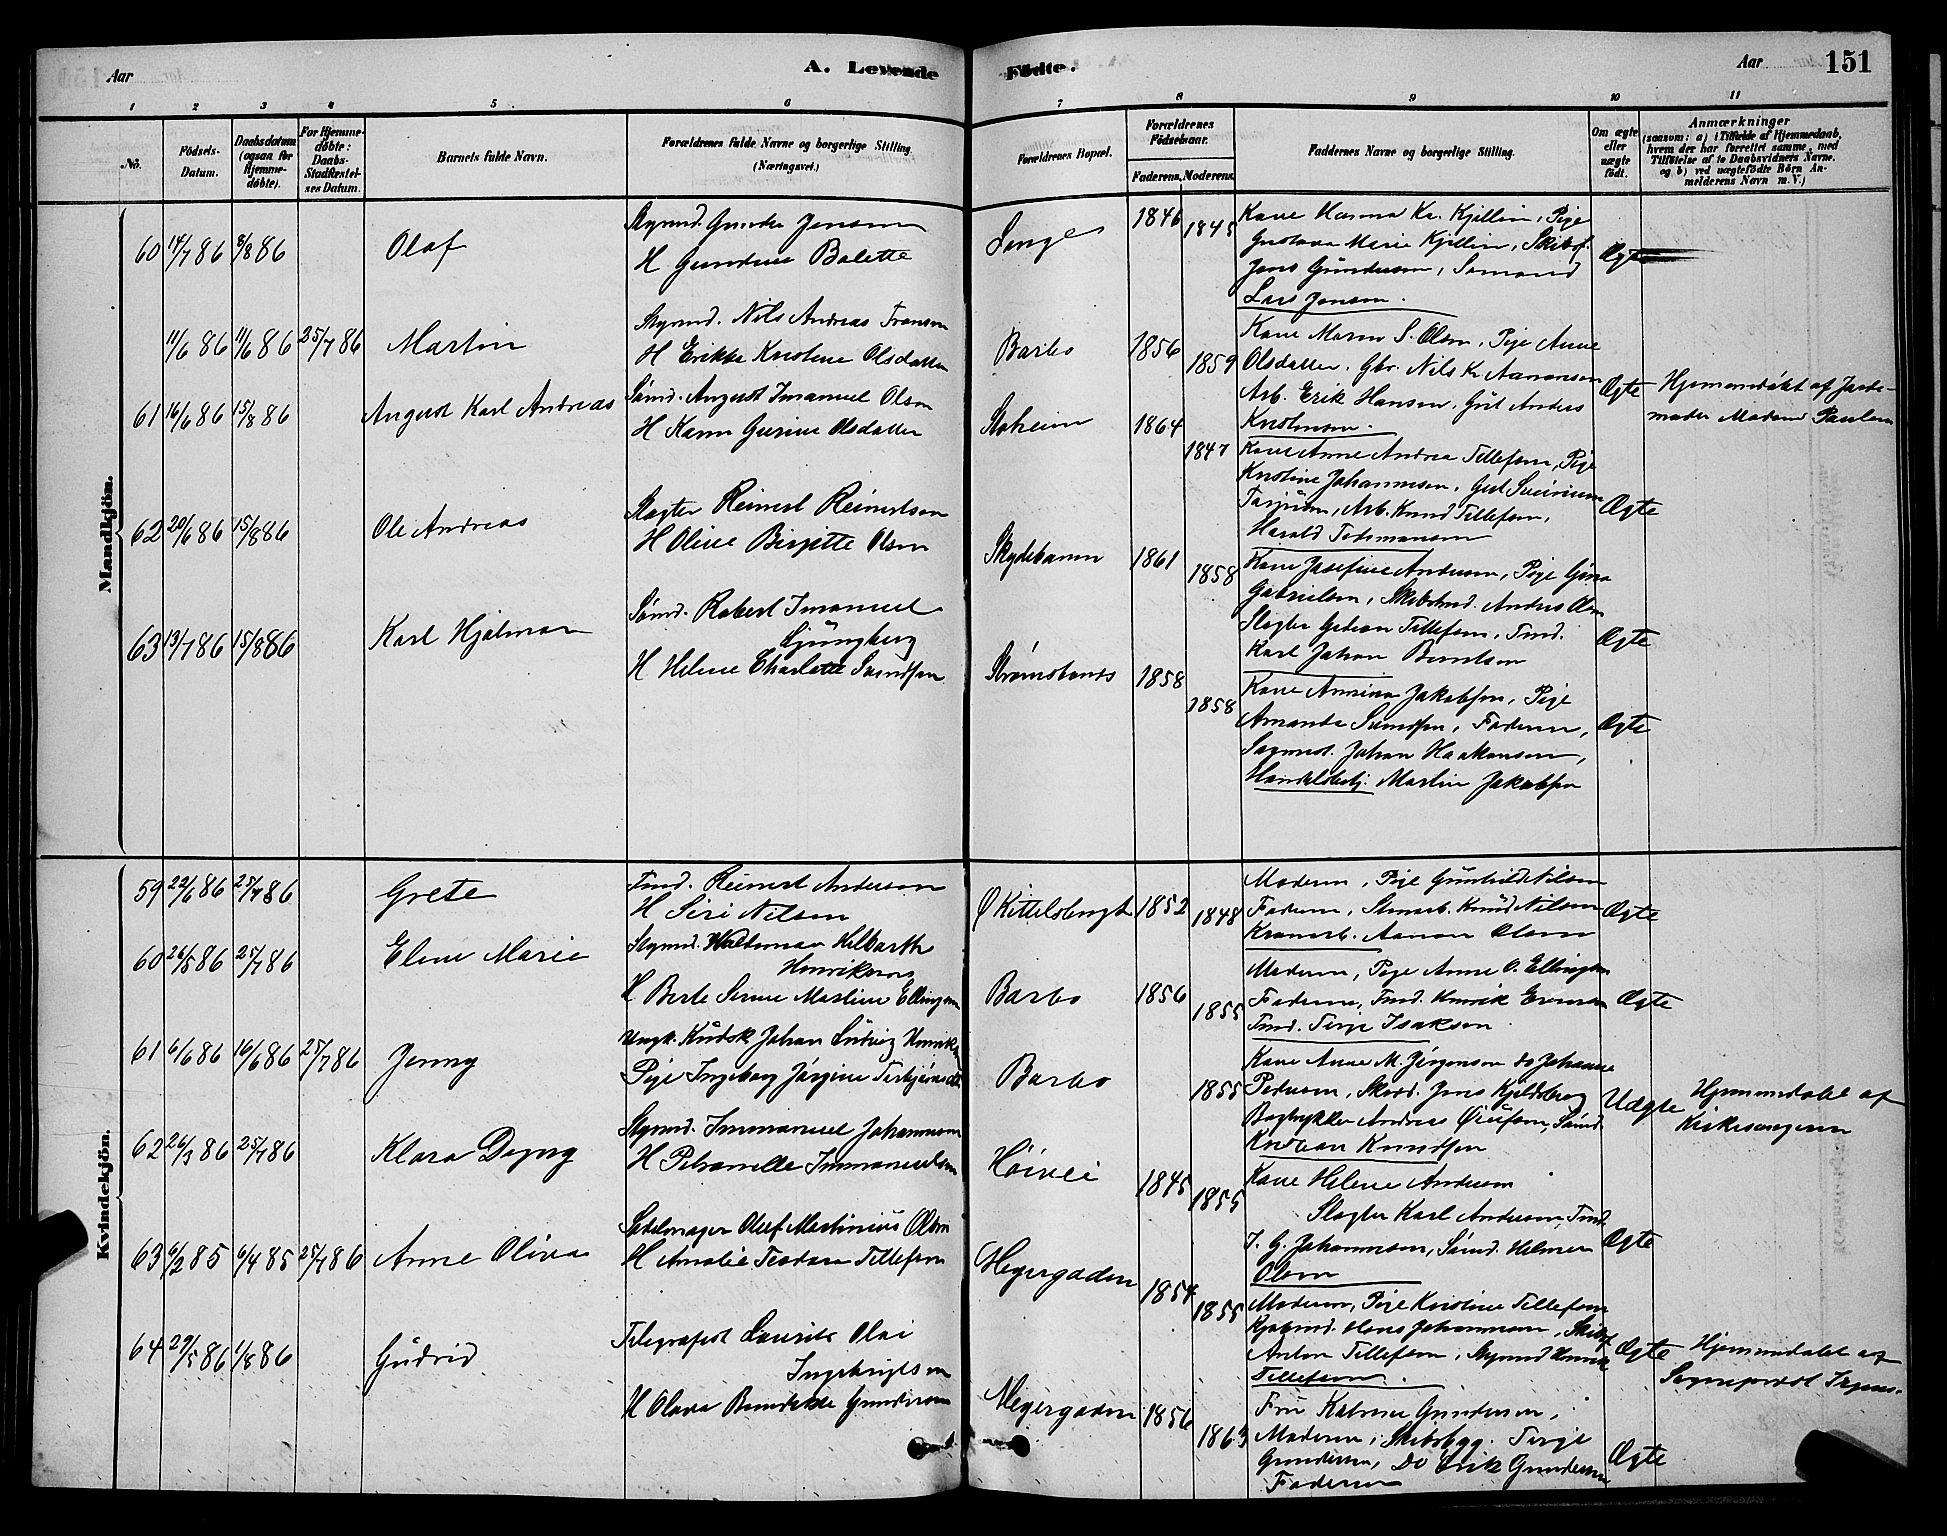 Aar
A. Levende
Fødte.
Aar
151
1 2 3 4 5 6 7 8 9 10 11
No.
Fødsels-Datum.
Daabsdatum (ogsaa for Hjemme-døbte).
For Hjemme-døbte: Daabs-Stadfæstel-ses Datum.
Barnets fulde Navn.
Forældrenes fulde Navne og borgerlige Stilling.
(Næringsvei.)
Forældrenes Bopæl.
Forældrenes Fødselsaar.
Faderens. Moderens.
Faddernes Navne og borgerlige Stilling.
Om ægte eller uægte født.
Anmærkninger
(saasom: a) i Tilfælde af Hjemmedaab, hvem der har forrettet samme, med Tilføielse af to Daabsvidners Navne. og b) ved uægtefødte Børn Anmelderens Navn m. V.)
Mandkjøn.
60 14/7 86 8/8 86
Olaf
Gunder Jensen
H Gundine Bolette
Songe
1846 1845
Kone Hanna Ka. Kjellin, Pige
Gustava Marie Kjellin, Skibsf.
Jens Gundersen, Sømand
Lars Jensen.
Ægte
11/6 86 11/6 86 25/7 86
Martin
Styrmd. Nils Andreas
H Erikke Kristine Olsdatter
Barbo
1856 1859
Kone Maren S. Olsen, Pige Anne
Olsdatter, Gbr. Nils K. Aanonsen
Arb. Erik Hansen, Gut Anders
Knutsen.
Ægte
Hjemmedøbt af Jorde-
moder Madam Paulsen
61 16/6 86 15/8 86
August Karl Andreas
Sømd. August Imanuel Olsen
H Karen Gurine Olsdatter
1864 1847
Kone Anne Andrea Tellefsen, Pige
Kristine Johannesen, Gut
Arb. Knud Tellefsen,
Harald
Ægte
62 20/6 86 15/8 86
Ole Andreas
Slagter Reinert Reinertsen
H Oline Birgitte Olsen
Skydebanen
1861 1858
Kone Josefine Andersen, Pige
Gabrielsen, Andreas Olsen
Slagter Tellefsen, Tmd.
Karl Johan Berntsen
Ægte
63 13/7 86 15/8 86
Karl Hjalmar
Sømd. Robert Imanuel
Ljungberg
H Helene Charlotte Svendsen
1858 1858
Kone Annine Jakobsen, Pige
Amanda Svendsen, Faderen,
Johan Haakonsen,
Handelsbetj. Martin Jakobsen
Ægte
Kvindekjøn.
59 22/6 86 25/7 86
Grete
Tmd. Reinert Andersen
H Siri Nilsen
Ø Kittelsbugt
1852 1848
Moderen, Pige Gunhild Nilsen
Faderen, Knud Nilsen
Aanon Olsen
Ægte
60 26/5 86 25/7 86
Elene Marie
Styrmd. Waldemar
Henriksen
H Berte Serine Martine Ellingsen
Barbo
1856 1855
Moderen, Pige Anne O. Ellingsen
Faderen, Tmd. Henrik
Tmd. Terje Isaksen.
Ægte
61 6/6 86 16/6 86 25/7 86
Jenny
Ungk. Kudsk Johan Ludvig
Pige Ingeborg Jørgine
Barbo
1855
Kone Anne M. Jørgensen do Johanne
Pedersen, Jens Kjeldsberg
Bogtrykker Andreas
Kristian Knudsen
Uægte
Hjemmedøbt af
Kirkesangeren
62 26/3 86 25/7 86
Klara
Styrmd. Immanuel Johannesen
H Petronelle Immanuelsen
Høivei
1845 1855
Kone Helene Andersen
Slagter Karl Andersen, Tmd.
J. G. Johannesen, Sømd. Helmer
Olsen
Ægte
63 6/2 85 6/4 85 25/7 86
Anne Oliva
Sadelmager Oluf Martinius Olsen
H Amalie Teodora Tellefsen
Heyergaden
1854 1855
Moderen, Pige Kristine Tellefsen
Hans Johannesen, Skibsf.
Anton Tellefsen, Styrmd Henrik
Tellefsen.
Ægte
Hjemmedøbt af
64 29/5 86 1/8 86
Gudrid
Telegrafist Laurits Olai
Ingebrigtsen
H Olava Benedikte Gundersen
Heyergaden
1856 1863
Fru Katrine Gundersen,
Moderen, Skibsbygg. Terje
Gundersen, Do Erik Gundersen
Faderen
Ægte